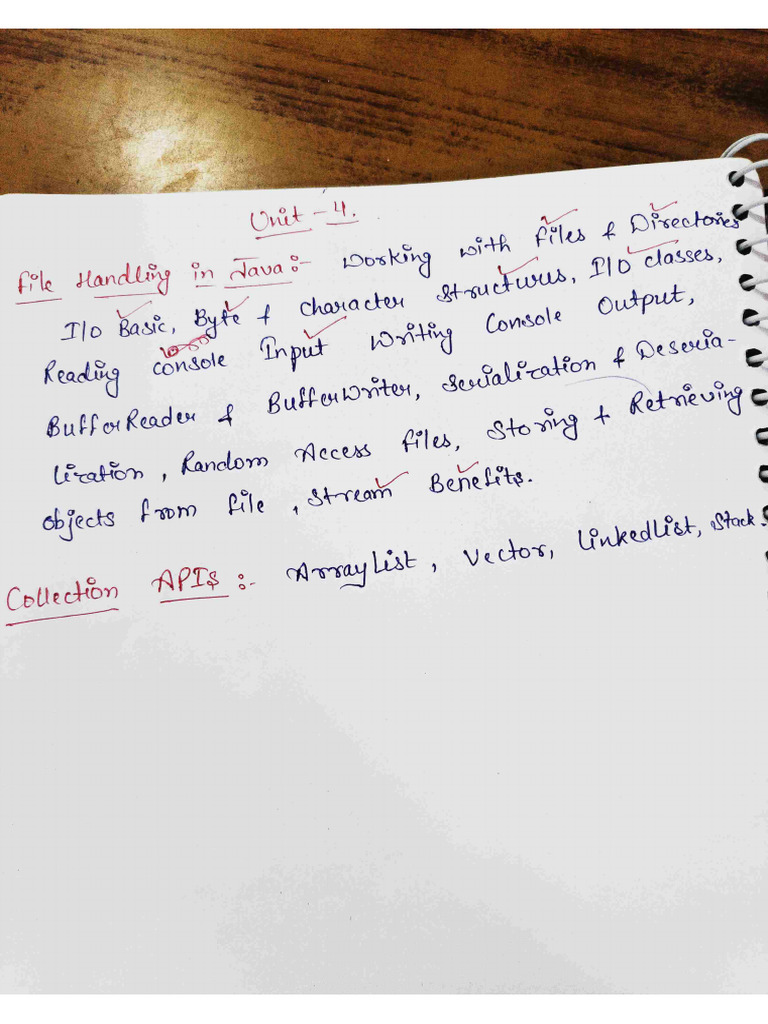 Unit - 4.
File Handling in Java :- Working with Files & Directories
I/O Basic, Byte & Character Structures, I/O classes,
Reading Console Input Writing Console Output,
BufferReader & BufferWriter, Serialization & Deseria-
lization, Random Access Files, Storing & Retrieving
objects from file, Stream Benefits.
Collection APIs :- ArrayList, Vector, LinkedList, Stack.